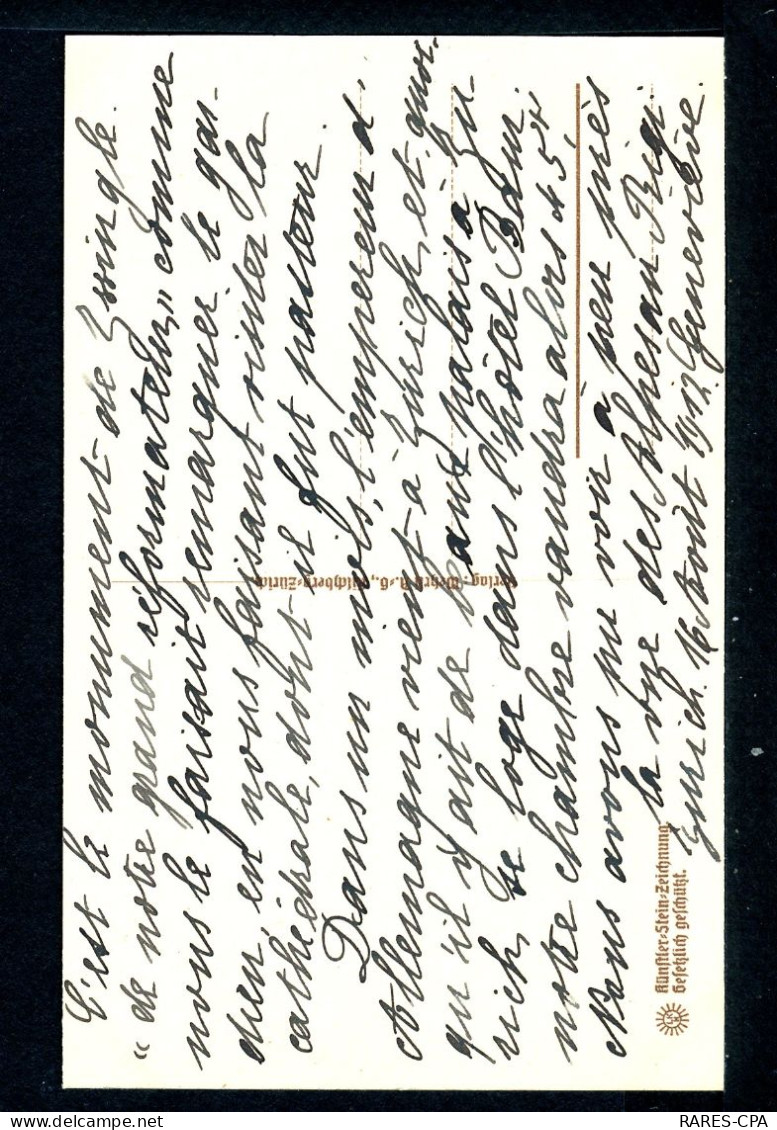 C'est le monument de Zwingle.
"de notre grand réformateur" comme
nous le faisait remarquer le gar-
dien, en nous faisant visiter la
cathédrale, dont il fut pasteur.
Dans un mois, l'empereur d'
Allemagne vient à Zurich, et quoi-
qu'il y ait de beaux palais à Zu
rich, se loge dans l'hôtel Baur.
notre chambre vaudra alors 45 #
Nous avons pu voir à peu près
la vue des Alpes au Rigi
Zurich. 16 Août 1912 Geneviève.
Verlag: Wehrli A.-G., Kilchberg-Zürich.
Künstler-Stein-Zeichnung.
Gesetzlich geschützt.
RARES-CPA